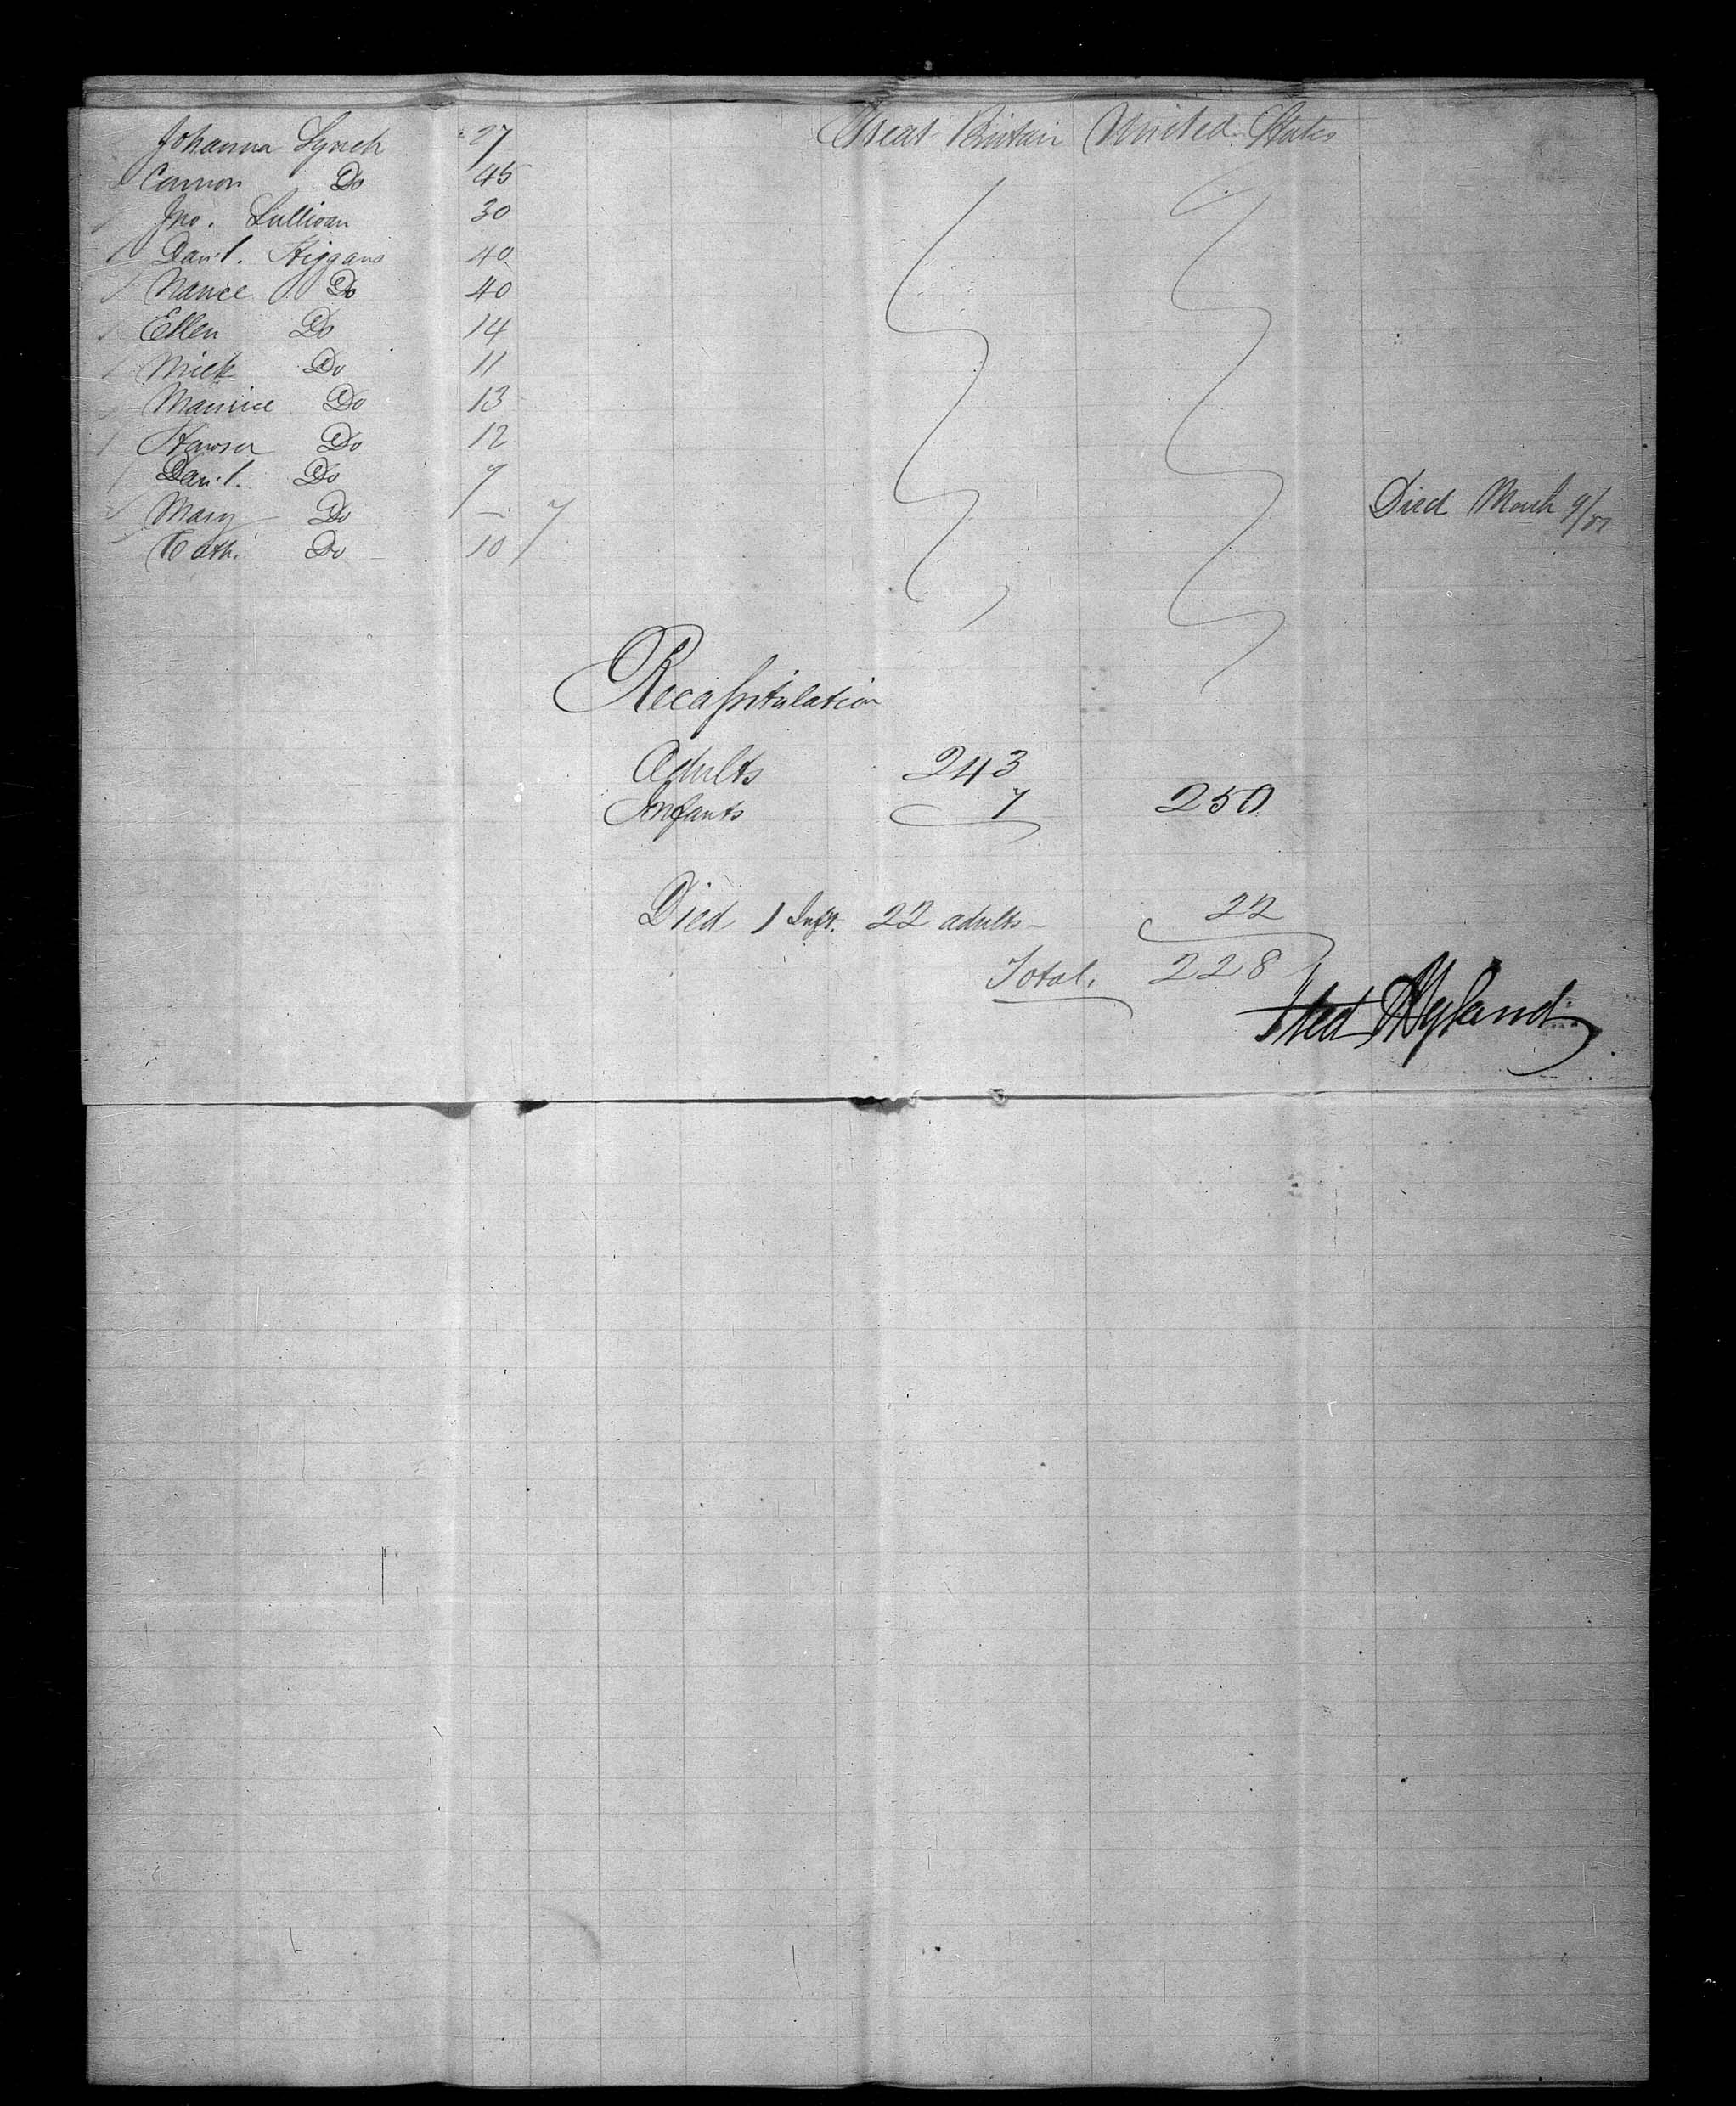 Johanna Lynch 27 Great Britain United States
Connor Do 45
Jno. Sullivan 30
Dan'l. Higgans 40
Nance Do 40
Ellen Do 14
Mick Do 11
Maurice Do 13
Do 12
Dan'l. Do 7
Mary Do — 7 Died March 9/51
Cath. Do 10
Recapitulation
Adults 243
Infants 7 250
Died 1 Inft. 22 adults — 22
Total. 228
Hyland